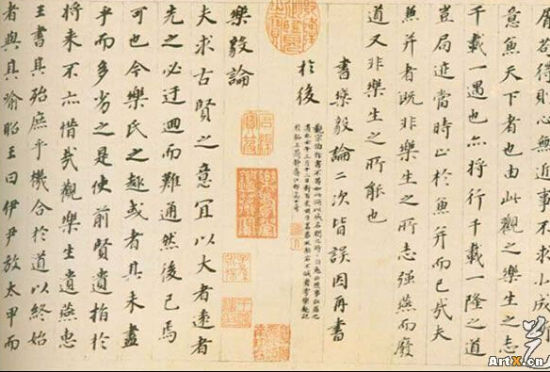 屑苟得則心無近事不求小成斯
意兼天下者也由此觀之志
千載一遇也亦將行千載一隆之道
豈局迹當時止於兼并而已哉夫
兼并者既非樂生之所志強燕而廢
道又非樂生之所能也
書樂毅論二次皆誤因再書
於後
樂毅論
夫求古賢之意宜以大者遠者
先之必迂迴而難通然後已焉
可也今樂氏之趣或者其未盡
乎而多劣之是使前賢遺指於
將来不亦惜哉觀樂生遺燕惠
王書其殆庶乎機合於道以終始
者與其喻昭王曰伊尹放太甲而
ArtX.cn